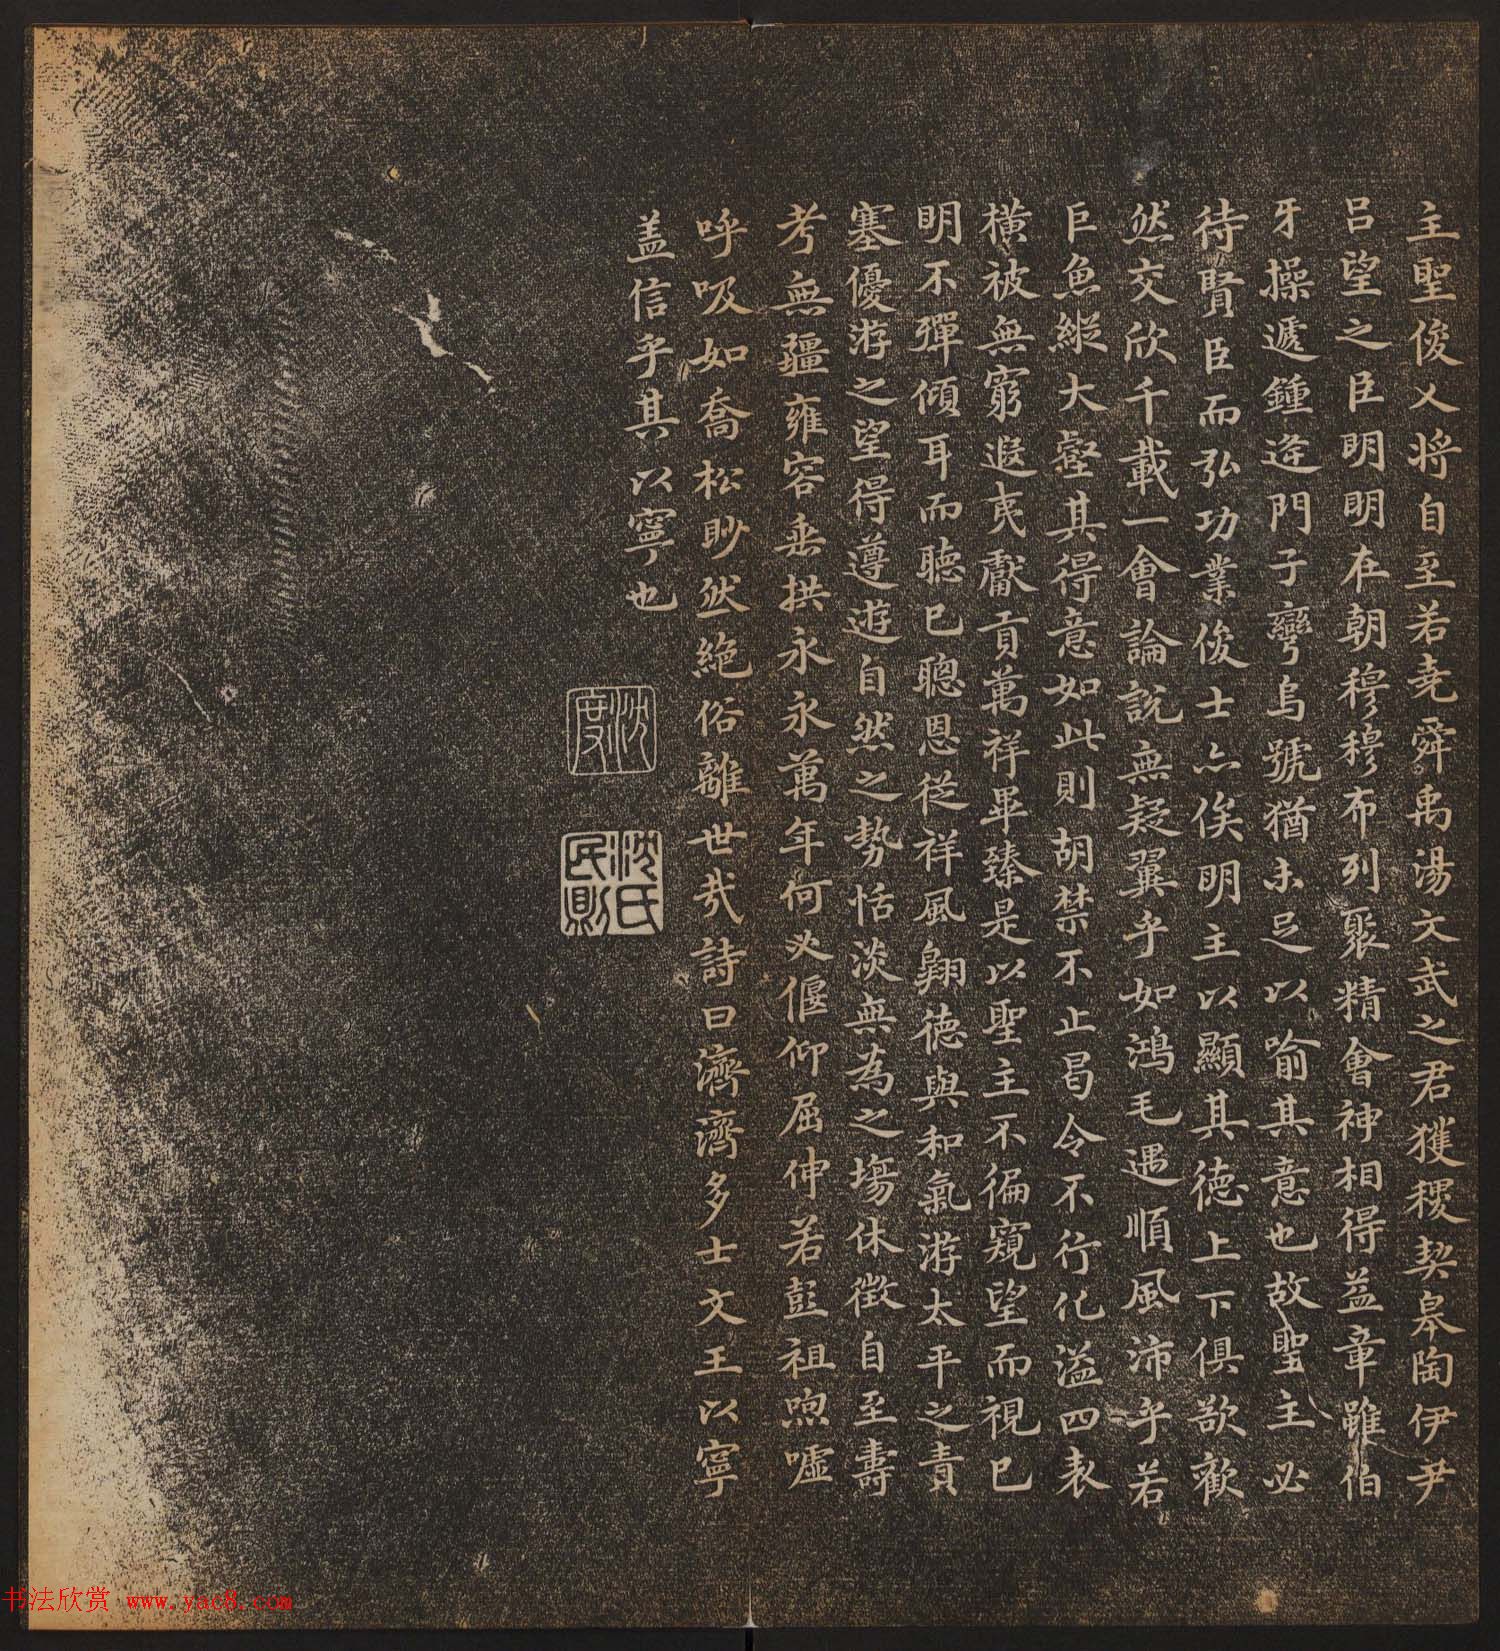 主聖俊乂將自至若堯舜禹湯文武之君獲稷契皋陶伊尹
呂望之臣明明在朝穆穆布列聚精會神相得益章雖伯
牙操遞鍾逄門子彎烏號猶未足以喻其意也故聖主必
待賢臣而弘功業俊士亦俟明主以顯其德上下俱欲歡
然交欣千載一會論說無疑翼乎如鴻毛遇順風沛乎若
巨魚縱大壑其得意如此則胡禁不止曷令不行化溢四表
橫被無窮遐夷獻貢萬祥畢臻是以聖主不徧窺望而視已
明不殫傾耳而聽已聰恩從祥風翱德與和氣游太平之責
塞優游之望得遵遊自然之勢恬淡無為之場休徵自至壽
考無疆雍容垂拱永永萬年何必偃仰屈伸若彭祖喣噓
呼吸如喬松眇然絕俗離世哉詩曰濟濟多士文王以寧
盖信乎其以寧也
沈度
沈氏民則
书法欣赏 www.yac8.com